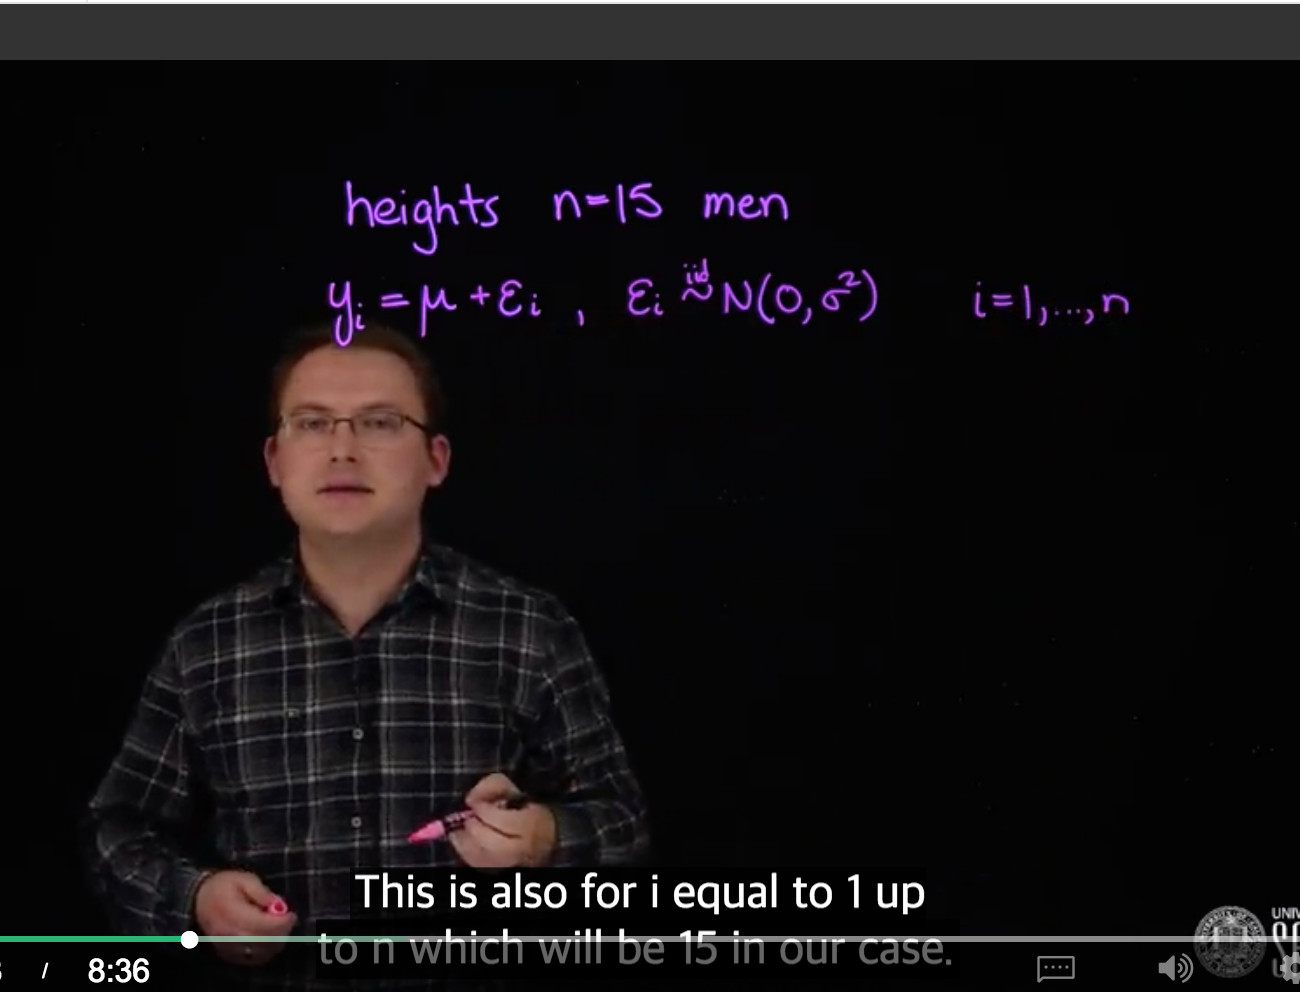 heights n=15 men
yᵢ = μ + εᵢ , εᵢ iid ~ N(0, σ²) i=1,...,n
This is also for i equal to 1 up
to n which will be 15 in our case.
/ 8:36